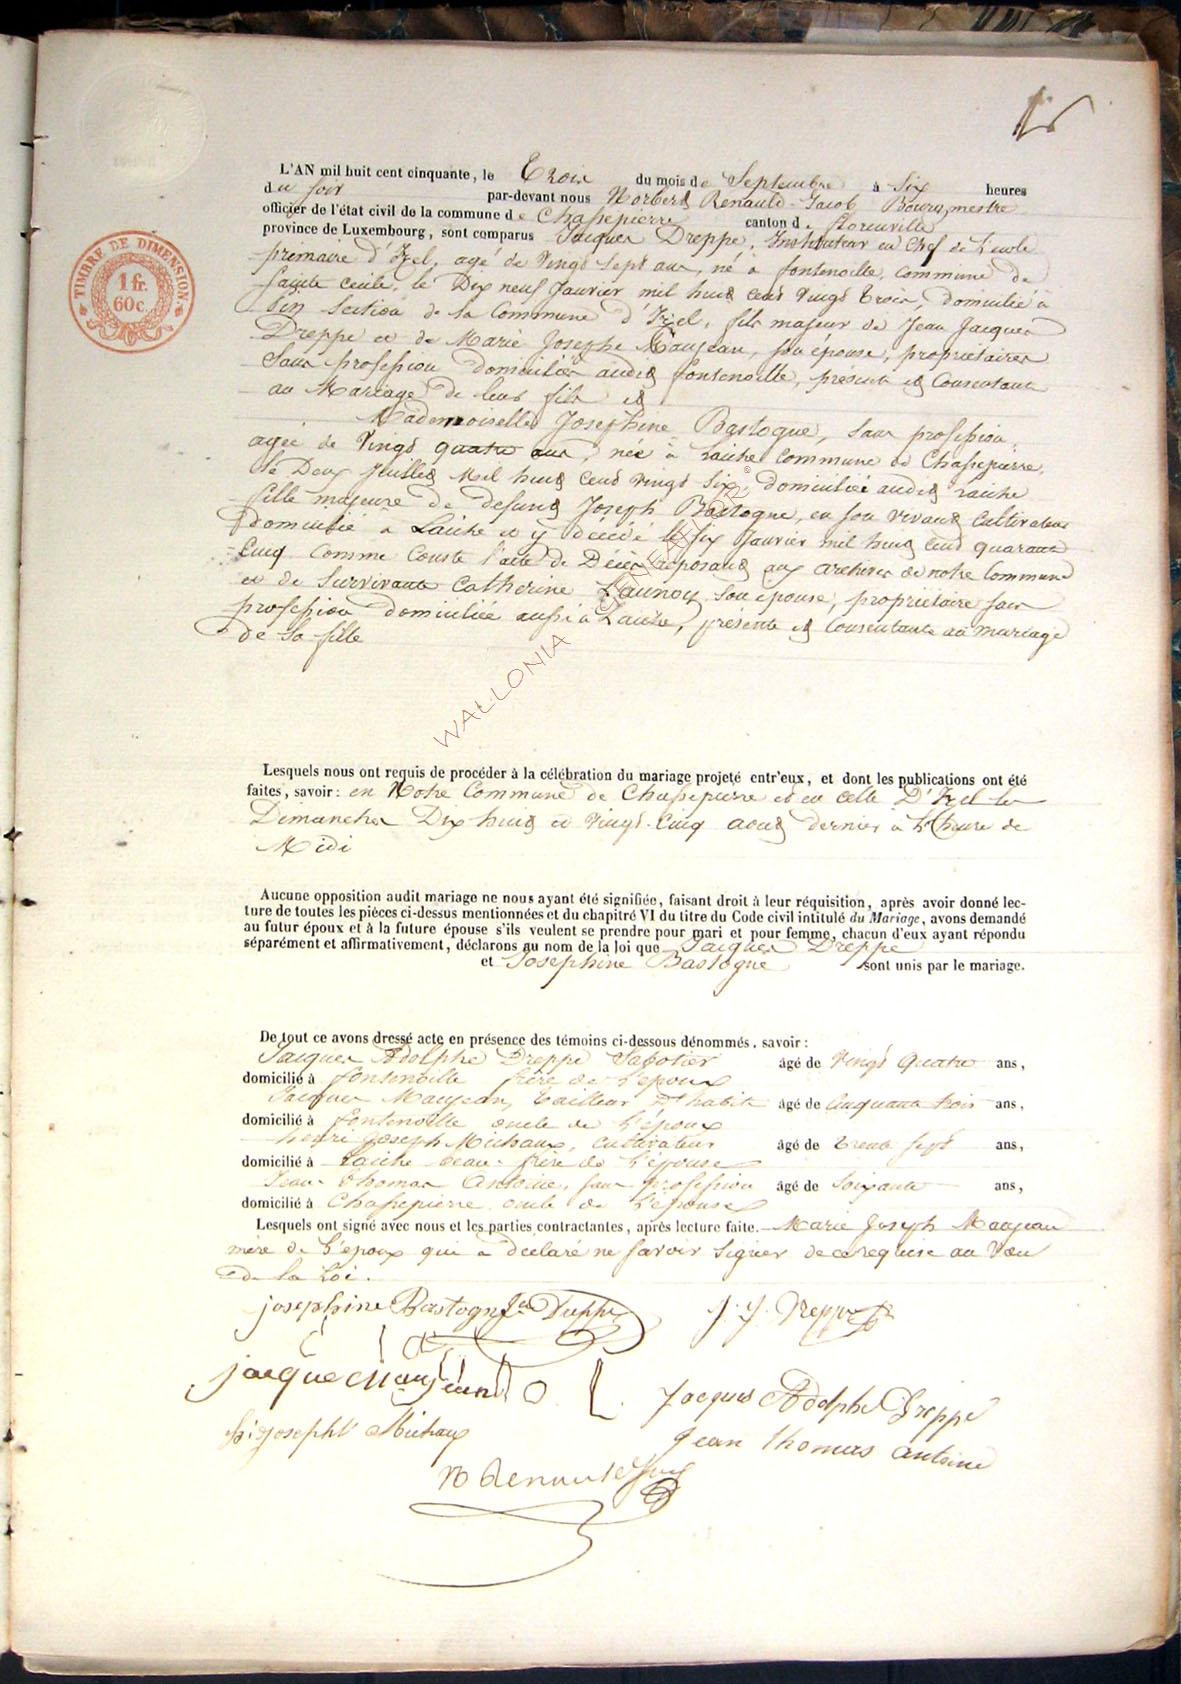 TIMBRE DE DIMENSION.
1 fr.
60c.
L'AN mil huit cent cinquante, le Trois du mois de Septembre à Six heures
du soir par-devant nous Norbert Renauld-Jacob Bourgmestre
officier de l'état civil de la commune de Chassepierre canton de florenville
province de Luxembourg, sont comparus Jacques Dreppe, Instituteur en Chef de l'ecole
primaire d'Izel, agé de vingt sept ans, né à fontenoille, Commune de
Sainte cecile, le Dix neuf Janvier mil huit cent vingt trois, domicilié à
Pin Section de la Commune d'Izel, fils majeur de Jean Jacques
Dreppe et de Marie Josephe Maujean, son épouse, propriétaires
Sans profession domiciliés audit fontenoille, présents et Consentants
au Mariage de leur fils et
Mademoiselle Josephine Bastogne, sans profession,
agée de vingt quatre ans, née à Laiche Commune de Chassepierre,
le Deux Juillet Mil huit Cent vingt Six, domiciliée audit Laiche
fille majeure de defunt Joseph Bastogne, en son vivant Cultivateur
domicilié à Laiche et y décédé le Six Janvier mil huit Cent quarante
Cinq Comme Conste l'acte de Décès déposant aux archives de notre Commune
et de survivante Catherine Launoy son épouse, propriétaire sans
profession domiciliée aussi à Laiche, présente et Consentante au mariage
de Sa fille
WALLONIA GENEALOR ©
Lesquels nous ont requis de procéder à la célébration du mariage projeté entr'eux, et dont les publications ont été
faites, savoir: en Notre Commune de Chassepierre et en celle D'Izel les
Dimanches Dix huit et vingt-Cinq aout dernier à l'heure de
Midi
Aucune opposition audit mariage ne nous ayant été signifiée, faisant droit à leur réquisition, après avoir donné lec-
ture de toutes les pièces ci-dessus mentionnées et du chapitre VI du titre du Code civil intitulé du Mariage, avons demandé
au futur époux et à la future épouse s'ils veulent se prendre pour mari et pour femme, chacun d'eux ayant répondu
séparément et affirmativement, déclarons au nom de la loi que Jacques Dreppe
et Josephine Bastogne sont unis par le mariage.
De tout ce avons dressé acte en présence des témoins ci-dessous dénommés, savoir:
Jacques Adolphe Dreppe Sabotier âgé de vingt quatre ans,
domicilié à fontenoille frère de l'epoux
Jacques Maujean, Tailleur D'habits âgé de Cinquante trois ans,
domicilié à fontenoille oncle de l'époux
henri Joseph Michaux, cultivateur âgé de trente sept ans,
domicilié à Laiche beau-frère de l'épouse
Jean-Thomas Antoine, sans profession âgé de Soixante ans,
domicilié à Chassepierre oncle de l'épouse
Lesquels ont signé avec nous et les parties contractantes, après lecture faite. Marie Joseph Maujean
mère de l'epoux qui a declaré ne savoir signer de ce requise au Voeu
de la Loi.
josephine Bastogne Jes Dreppe J. J. Dreppe
jacque Maujean
Jacques Adolphe Dreppe
h: joseph Michaux
Jean thomas antoine
N Renauld